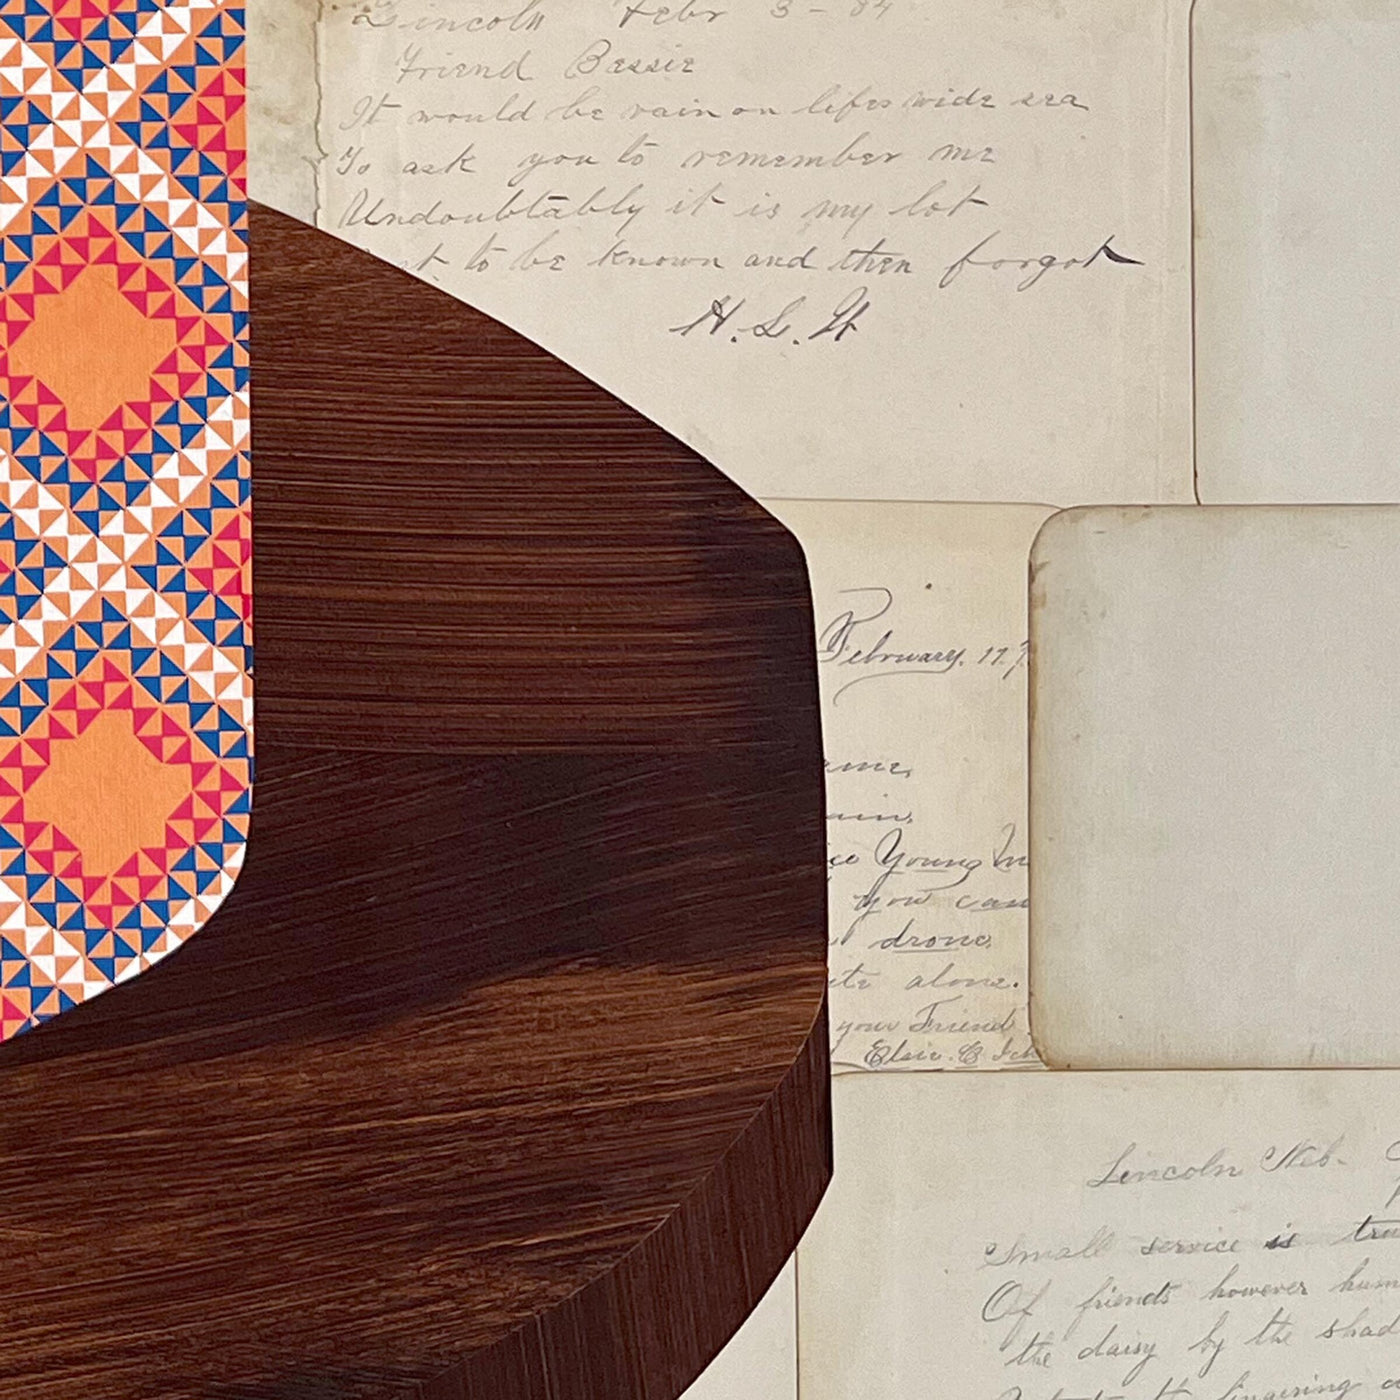 Lincoln Febr 3 - 84
Friend Bessie
It would be vain on lifes wide sea
To ask you to remember me
Undoubtably it is my lot
to be known and then forgot
H. L. H
February. 17.
Young
you can
drone
alone.
your Friend
Lincoln Neb-
Small service is
Of friends however
the daisy by the
lingering